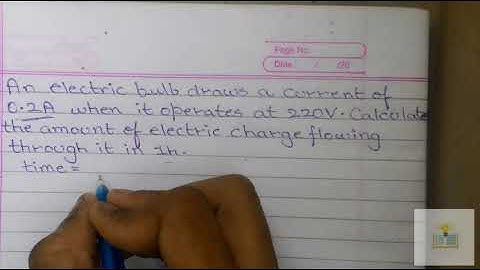 Page No.
Date / /20
An electric bulb draws a current of
0.2A when it operates at 220V. Calculate
the amount of electric charge flowing
through it in 1h.
time =